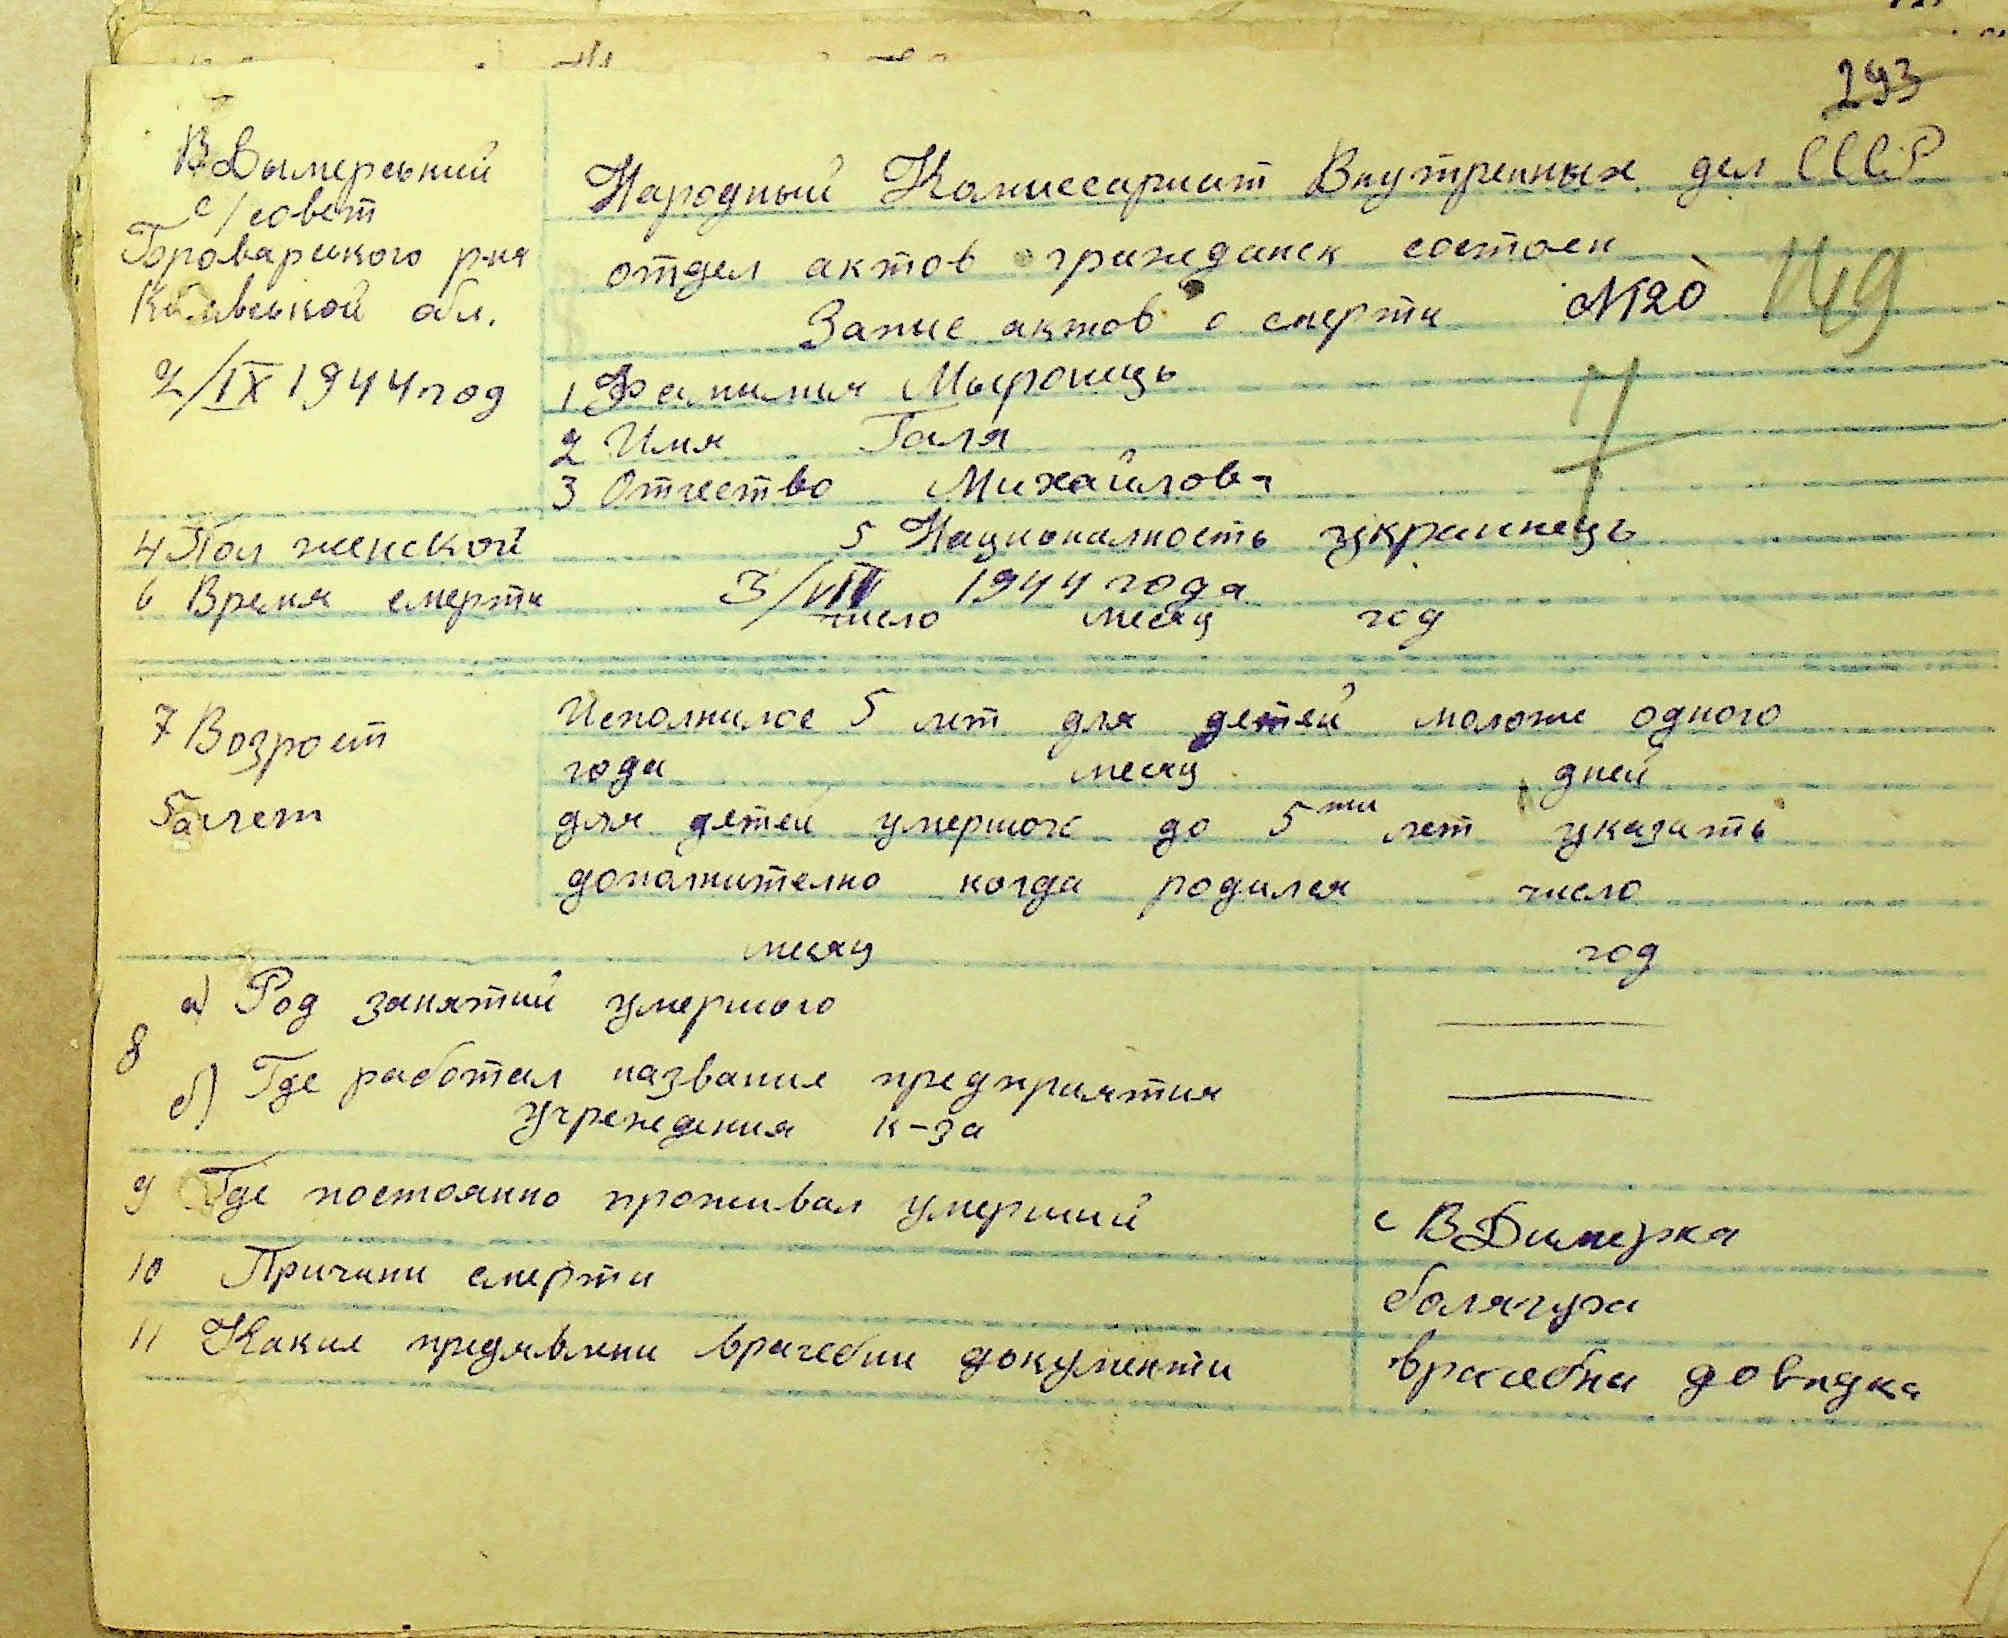 293
В Дымерський
с/совет
Броварского р-на
Киивськой обл.
2/IX 1944 год
Народный Комиссариат Внутренных дел СССР
отдел актов гражданск состоян
Запис актов о смерти №20 149
1 Фамилия Мыронець
2 Имя Галя
3 Отчество Михайлов-а
4 Пол женской 5 Националность украинець
6 Время смерти 3/VIII 1944 года
число месяц год
7 Возрост
5 лет
Исполнилос 5 лет для детей моложе одного
года месяц дней
для детей умершох до 5ти лет указать
дополнително когда родился число
месяц год
8
а) Род занятий умершого —
б) Где работал название предприятия —
учреждения к-за
9 Где постоянно проживал умерший с В Димерка
10 Причини смерти
11 Какие предявлени врачебни документи врачебна довидка